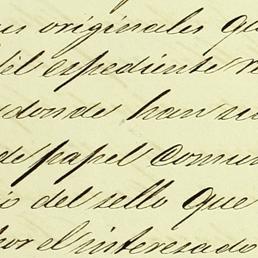 originales que
el expediente
donde han
de papel comun
o del sello que
por el interesado